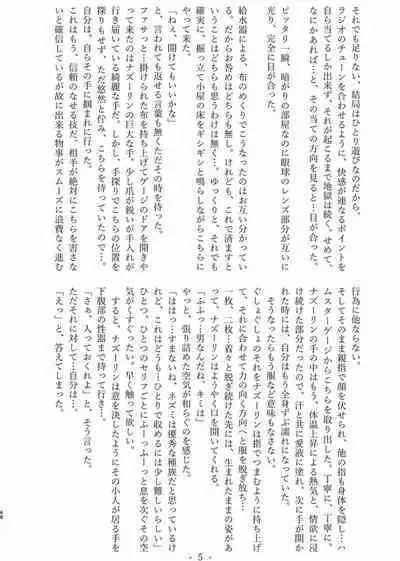 それでも足りない、結局はひとり遊びなのだから。
ラジオのチューンを合わせるように、快感が連なるポイントを
自ら当てるしか出来ず、それが起こるまで地獄は続く。せめて、
なにかあれば…と、その当ての方向を見ると…目が合った。
ピッタリ一瞬、暗がりの部屋なのに眼球のレンズ部分が互いに
光り、完全に目が合った。
給水器による、布のめくりでこうなったのはお互い分かってい
る。だからお咎めはどちらも無し。けれども、これで済ますと
いうことはどちらも思うわけは無く…。ゆっくりと、それでも
確実に、掘っ立て小屋の床をギシギシと鳴らしながらこちらに
やって来た。
「ねぇ、開けてもいいかな」
と、言われても返せる言葉も無くただその時を待った。
ファサっと…掛けられた布を持ち上げてゲージのドアを開きや
って来たのはナズーリンの巨大な手。少し爪が鋭いが手入れが
行き届いている綺麗な手だ。しかし、手探りでこちらの位置を
探りもせず、ただ悠然と佇み、こちらを待っていたので…。
自分は、自らその手に掴まれに行った。
これはもう、信頼のなせる技だ。相手が絶対にこちらを害さな
いと確信しているが故に出来る物事がスムーズに浪費なく進む
行為に他ならない。
そしてそのまま親指で顔を伏せられ、他の指も身体を隠し…ハ
ムスターゲージからこちらを取り出した。丁寧に、丁寧に。
ナズーリンの手の中はもう、体温上昇による熱気と、情欲に浸
け続けた部分だったので、汗と共に愛液に塗れ、次に手が開か
れた時には、自分はもう全身ずぶ濡れになっていた。
そうなったらもう服など意味もなさない。
ぐしょぐしょのそれをナズーリンは摺でつまむように持ち上げ
て、それに合わせて力の向く方向へと服を脱ぎ放ち…
一枚、二枚…着々と脱ぎ続けた先には、生まれたままの姿があ
って、ナズーリンはようやく口を開いてくれる。
「ふふっ…男なんだね、キミは」
やっと、張り詰めた空気が和らぐのを感じた。
「ははっ…すまないね、ネズミは優秀な種族だと思っているけ
れど、これはどうも…ひとりで収めるには少し難しいらしい」
ひとつ、ひとつのセリフごとにふーっふーっと息を次ぐその空
気がくすぐったい。早く触って欲しい。
すると、ナズーリンは意を決したようにその小人が居る手を
下腹部の性器まで持って行き…
「さぁ、入っておくれよ」と、そう言った。
ただそれに対して…自分は…。
「えっ」と、答えてしまった。
- 5 -